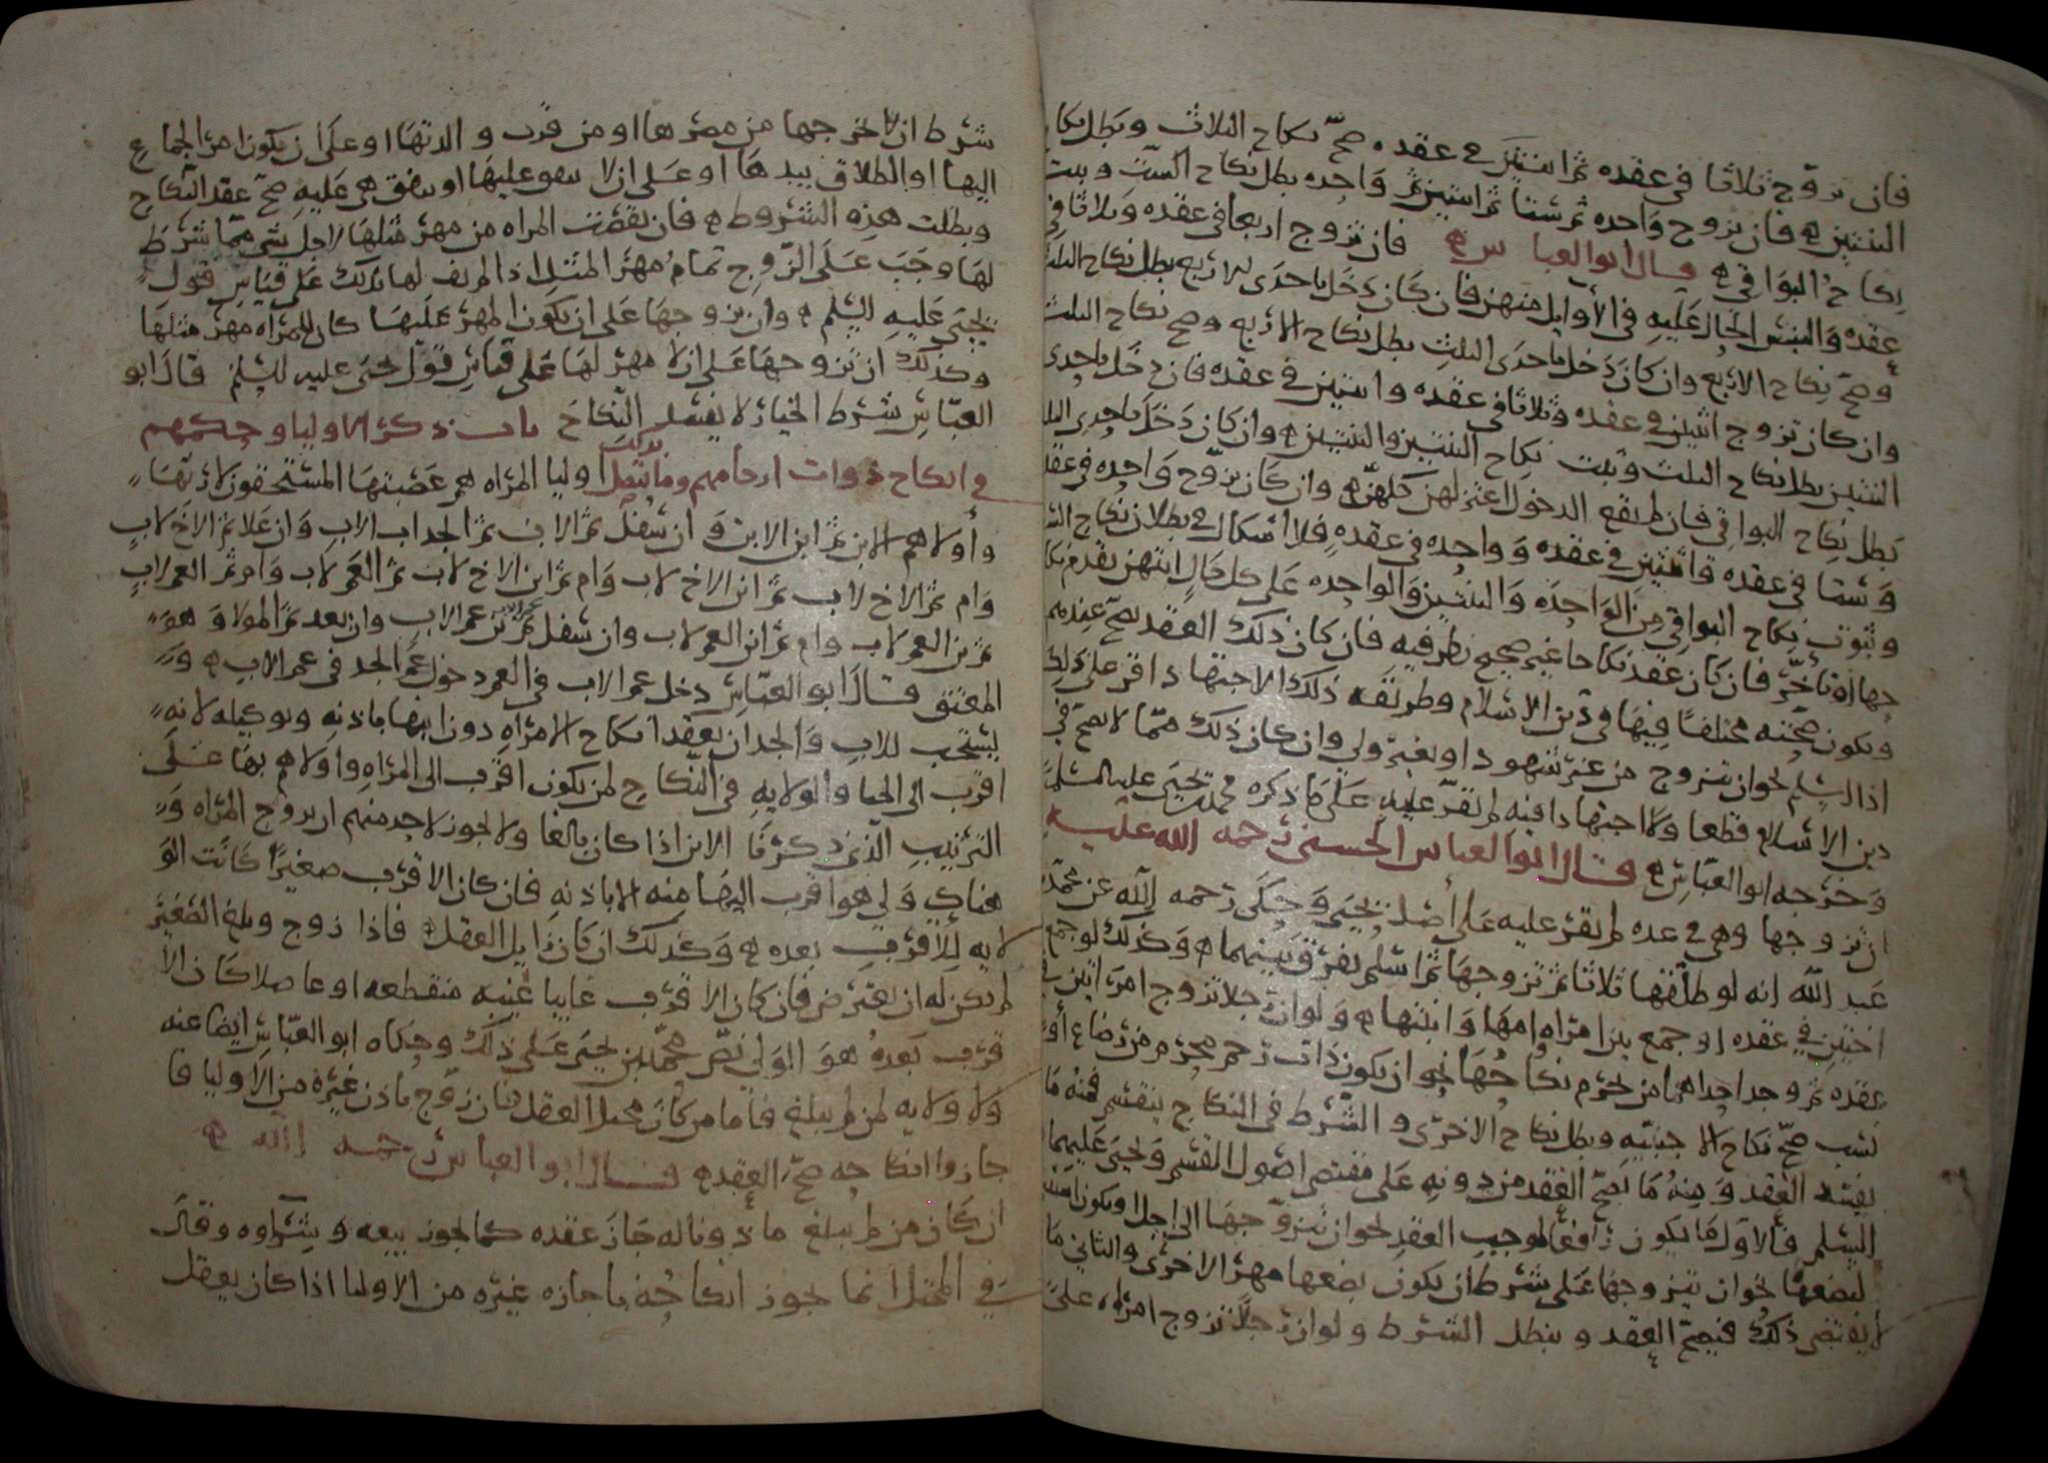 فان تزوج ثلاثا في عقده ثم اثنتين في عقده صح نكاح الثلاث وبطل نكاح
الثنتين فان تزوج واحده ثم ستا ثم اثنتين ثم واحده بطل نكاح الست وثبت
نكاح البواقي قال ابو العباس فان تزوج اربعا في عقده وثلاثا في
عقده والتبس الحال عليه في الاوايل منهن فان كان دخل باحدى الاربع بطل نكاح الثلث
وصح نكاح الاربع وان كان دخل باحدى الثلث بطل نكاح الاربع وصح نكاح الثلث
وان كان تزوج اثنتين في عقده وثلاثا في عقده واثنتين في عقده فان دخل باحدى
الثنتين بطل نكاح الثلث وثبت نكاح الثنتين والثنتين وان كان دخل باحدى الثلث
بطل نكاح البواقي فان لم يقع الدخول اعتزلهن كلهن وان كان تزوج واحده في عقده
وستا في عقده واثنتين في عقده وواحده في عقده فلا اشكال في بطلان نكاح الست
وثبوت نكاح البواقي من الواحده والثنتين والواحده على كل حال ايتهن تقدم نكا
حها او تأخر فان كان عقد نكاحا غير صحيح نظر فيه فان كان ذلك العقد يصح عندهم
وتكون صحته مختلفا فيها في دين الاسلام وطريقه ذلك الاجتهاد اقر على ذلك
اذا اسلم نحو ان يتزوج من غير شهود او بغير ولي وان كان ذلك مما لا يصح في
دين الاسلام قطعا ولا اجتهاد فيه لم يقر عليه على ما ذكره محمد بن يحيى عليه السلام
وخرجه ابو العباس قال ابو العباس الحسني رحمه الله عليه
ان تزوجها وهي في عده لم يقر عليه على أصل يحيى وحكى رحمه الله عن محمد بن
عبد الله انه لو طلقها ثلاثا ثم تزوجها ثم اسلم يفرق بينهما وكذلك لو جمع
اختين في عقده او جمع بين امراه وامها وابنتها ولو ان رجلا تزوج امراتين في
عقده ثم وجد احداهما من يحرم نكاحها نحو ان يكون ذات رحم محرم من رضاع أو
نسب صح نكاح الاجنبيه وبطل نكاح الاخرى والشرط في النكاح ينقسم فمنه ما
يفسد العقد ومنه ما يصح العقد من دونه على مقتضى اصول القسم ويحيى عليهما
السلم فالاول ما يكون رافعا لموجب العقد نحو ان يتزوجها الى اجل او يكون استثنا
لبضعها نحو ان يتزوجها على شرط ان يكون بضعها مهر الاخرى والثاني ما
لا يقتضي ذلك فيصح العقد ويبطل الشرط ولو ان رجلا تزوج امراه على
شرط ان لا يخرجها من مصرها او من قرب والدتها او على ان يكون امر الجماع
اليها او الطلاق بيدها او على ان لا ينفق عليها او تنفق هي عليه صح عقد النكاح
وبطلت هذه الشروط فان نقصت المراه من مهر مثلها لاجل شي مما شرط
لها وجب على الزوج تمام مهر المثل اذا لم يف لها بذلك على قياس قول
يحيى عليه السلم وان تزوجها على ان يكون المهر عليها كان للمراه مهر مثلها
وكذلك ان تزوجها على ان لا مهر لها على قياس قول يحيى عليه السلم قال ابو
العباس شرط الخيار لا يفسد النكاح باب ذكر الاوليا وحكمهم
في انكاح ذوات ارحامهم وما يتصل بذلك اوليا المراه هم عصبتها المستحقون لارثها
وأولاهم الابن ثم ابن الابن وان سفل ثم الاب ثم الجد اب الاب وان علا ثم الاخ لاب
وام ثم الاخ لاب ثم ابن الاخ لاب وام ثم ابن الاخ لاب ثم العم لاب وام ثم العم لاب
ثم بن العم لاب وام ثم ابن العم لاب وان سفل ثم عم الاب ثم بن عم الاب وان بعد ثم المولا وهو
المعتق قال ابو العباس دخل عم الاب في العم دخول عم الجد في عم الاب و
يستحب للاب والجد ان يعقد انكاح الامراه دون ابنها باذنه وتوكيله لانه
اقرب الى الحيا والولايه في النكاح لمن يكون اقرب الى المراه واولاهم بها على
الترتيب الذي ذكرنا الابن اذا كان بالغا ولا يجوز لاحد منهم ان يزوج المراه و
هناك ولي هو اقرب اليها منه الا باذنه فان كان الاقرب صغيرا كانت الو
لايه للاقرب بعده وكذلك ان كان زايل العقل فاذا زوج وبلغ الصغير
لم يكن له ان يعترض فان كان الاقرب غايبا غيبه منقطعه او عاضلا كان الا
قرب بعده هو الولي نص محمد بن يحيى على ذلك وحكاه ابو العباس ايضا عنه
ولا ولايه لمن لم يبلغ فاما من كان مختل العقل فان زوج باذن غيره من الاوليا فا
جازوا انكاحه صح العقد قال ابو العباس رحمه الله
ان كان من لم يبلغ ماذونا له جاز عقده كما يجوز بيعه وشراوه وقال
في المختل انما يجوز انكاحه باجازه غيره من الاوليا اذا كان يعقل